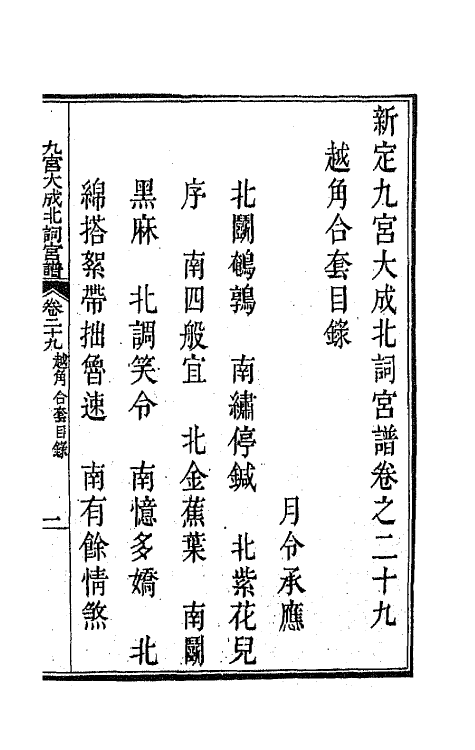 新定九宮大成北詞宮譜卷之二十九
越角合套目錄
月令承應
北鬭鵪鶉　南繡停鍼　北紫花兒
序　南四般宜　北金蕉葉　南鬭
黑麻　北調笑令　南憶多嬌　北
綿搭絮帶拙魯速　南有餘情煞
九宮大成北詞宮譜　卷二十九　越角合套目錄　一